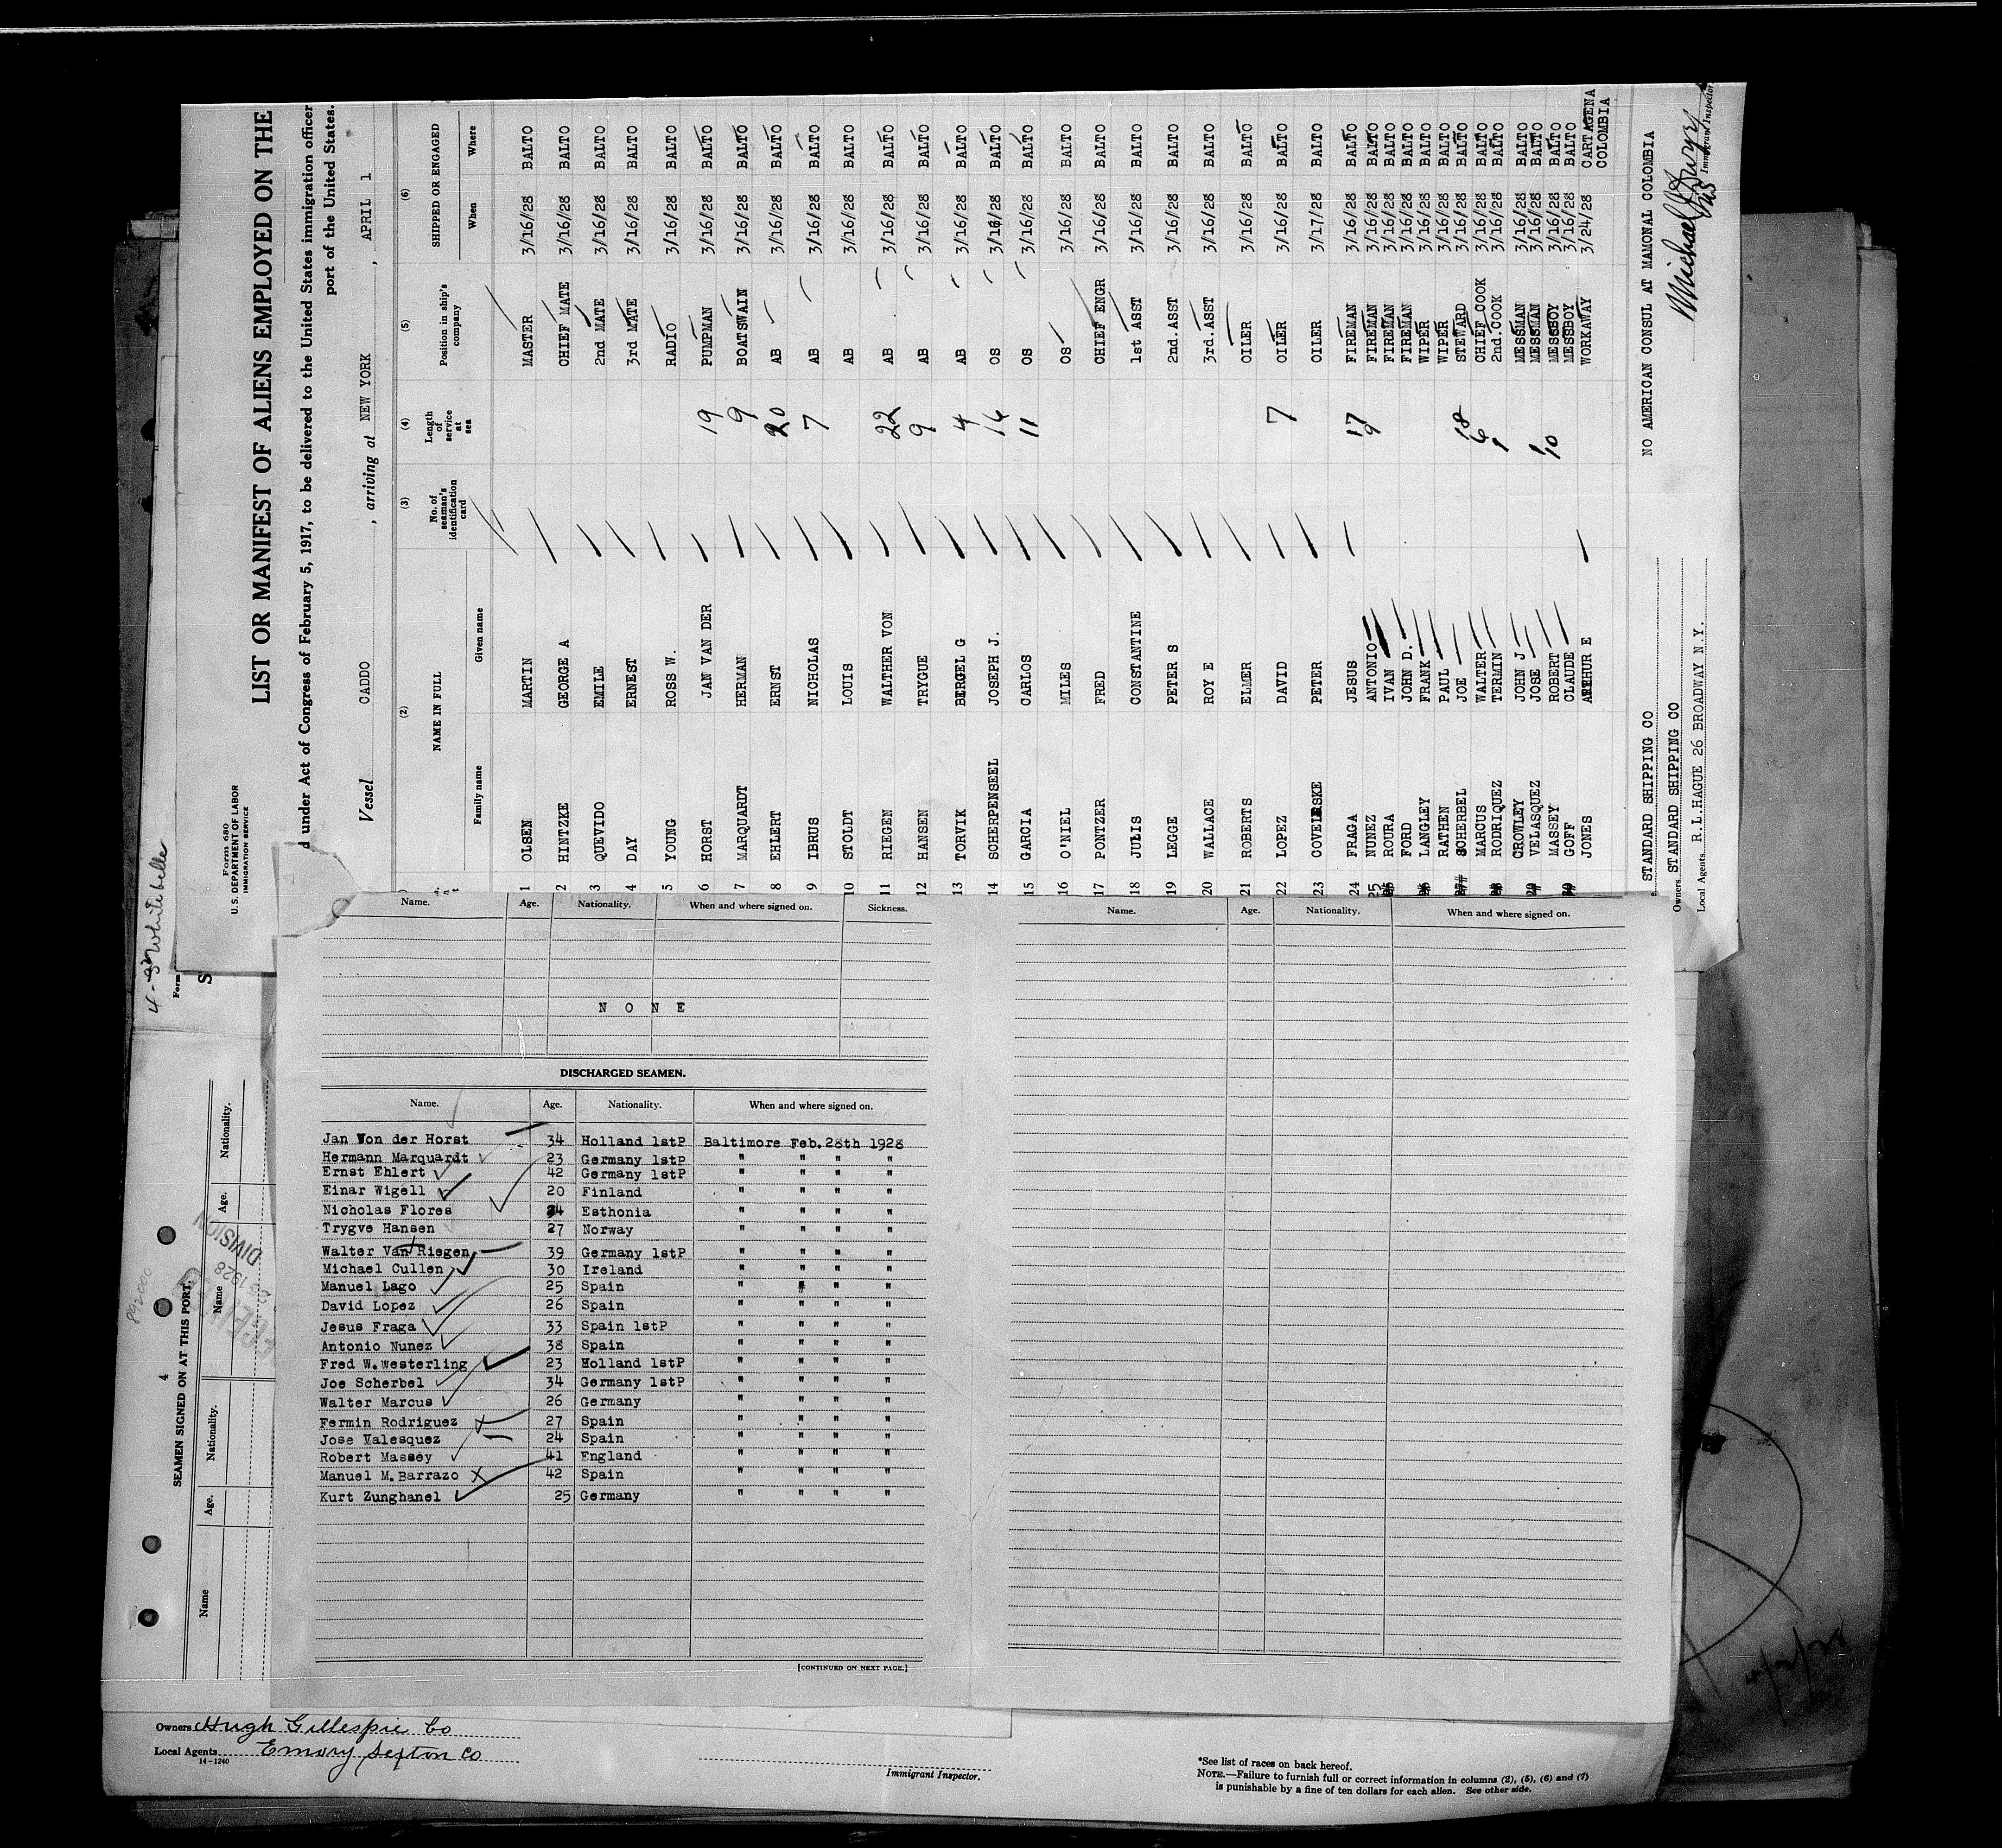 Form 680
U. S. DEPARTMENT OF LABOR
IMMIGRATION SERVICE
LIST OR MANIFEST OF ALIENS EMPLOYED ON THE
d under Act of Congress of February 5, 1917, to be delivered to the United States immigration officer
port of the United States.
Vessel CADDO , arriving at NEW YORK , APRIL 1
(2) (3) (4) (5) (6)
NAME IN FULL No. of seaman's identification card Length of service at sea Position in ship's company SHIPPED OR ENGAGED
Family name Given name When Where
1 OLSEN MARTIN MASTER 3/16/28 BALTO
2 HINTZKE GEORGE A CHIEF MATE 3/16/28 BALTO
3 QUEVIDO EMILE 2nd MATE 3/16/28 BALTO
4 DAY ERNEST 3rd MATE 3/16/28 BALTO
5 YOUNG ROSS W. RADIO 3/16/28 BALTO
6 HORST JAN VAN DER 19 PUMPMAN 3/16/28 BALTO
7 MARQUARDT HERMAN 9 BOATSWAIN 3/16/28 BALTO
8 EHLERT ERNST 20 AB 3/16/28 BALTO
9 IBRUS NICHOLAS 7 AB 3/16/28 BALTO
10 STOLDT LOUIS AB 3/16/28 BALTO
11 RIEGEN WALTHER VON 22 AB 3/16/28 BALTO
12 HANSEN TRYGUE 9 AB 3/16/28 BALTO
13 TORVIK BERGEL G 4 AB 3/16/28 BALTO
14 SCHERPENSEEL JOSEPH J. 14 OS 3/16/28 BALTO
15 GARCIA CARLOS 11 OS 3/16/28 BALTO
16 O'NIEL MILES OS 3/16/28 BALTO
17 PONTZER FRED CHIEF ENGR 3/16/28 BALTO
18 JULIS CONSTANTINE 1st ASST 3/16/28 BALTO
19 LEGGE PETER S 2nd.ASST 3/16/28 BALTO
20 WALLACE ROY E 3rd.ASST 3/16/28 BALTO
21 ROBERTS ELMER OILER 3/16/28 BALTO
22 LOPEZ DAVID 7 OILER 3/16/28 BALTO
23 COVELESKE PETER OILER 3/17/28 BALTO
24 FRAGA JESUS 17 FIREMAN 3/16/28 BALTO
25 NUNEZ ANTONIO 9 FIREMAN 3/16/28 BALTO
ROURA IVAN FIREMAN 3/16/28 BALTO
FORD JOHN D. FIREMAN 3/16/28 BALTO
LANGLEY FRANK WIPER 3/16/28 BALTO
RATHEN PAUL WIPER 3/16/28 BALTO
SCHERBEL JOE 18 STEWARD 3/16/28 BALTO
MARCUS WALTER 6 CHIEF COOK 3/16/28 BALTO
RODRIQUEZ TERMIN 1 2nd.COOK 3/16/28 BALTO
CROWLEY JOHN J MESSMAN 3/16/28 BALTO
VELASQUEZ JOSE 1 MESSMAN 3/16/28 BALTO
MASSEY ROBERT 10 MESSBOY 3/16/28 BALTO
GOFF CLAUDE MESSBOY 3/16/28 BALTO
JONES ARTHUR E WORKAWAY 3/24/28 CARTAGENA
COLOMBIA
STANDARD SHIPPING CO NO AMERICAN CONSUL AT MAMONAL COLOMBIA
Owners STANDARD SHIPPING CO
Local Agents R.L.HAGUE 26 BROADWAY N.Y. Immigrant Inspector
4-3 Whitebelle
Form
S
Name. Age. Nationality. When and where signed on. Sickness.
N O N E
DISCHARGED SEAMEN.
Name. Age. Nationality. When and where signed on.
Jan Von der Horst 34 Holland 1stP Baltimore Feb.28th 1928
Hermann Marquardt 23 Germany 1stP " " " "
Ernst Ehlert 42 Germany 1stP " " " "
Einar Wigell 20 Finland " " " "
Nicholas Flores 34 Esthonia " " " "
Trygve Hansen 27 Norway " " " "
Walter Van Riegen 39 Germany 1stP " " " "
Michael Cullen 30 Ireland " " " "
Manuel Lago 25 Spain " " " "
David Lopez 26 Spain " " " "
Jesus Fraga 33 Spain 1stP " " " "
Antonio Nunez 38 Spain " " " "
Fred W.westerling 23 Holland 1stP " " " "
Joe Scherbel 34 Germany 1stP " " " "
Walter Marcus 26 Germany " " " "
Fermin Rodriguez 27 Spain " " " "
Jose Valesquez 24 Spain " " " "
Robert Massey 41 England " " " "
Manuel M.Barrazo 42 Spain " " " "
Kurt Zunghanel 25 Germany " " " "
[CONTINUED ON NEXT PAGE.]
Name. Age. Nationality. When and where signed on.
4
SEAMEN SIGNED ON AT THIS PORT.
Name Age. Nationality. Name Age. Nationality.
1928
DIVISION
Owners Hugh Gillespie Co
Local Agents Emory Sexton Co
14-1240
Immigrant Inspector.
*See list of races on back hereof.
NOTE.—Failure to furnish full or correct information in columns (2), (5), (6) and (7)
is punishable by a fine of ten dollars for each alien. See other side.